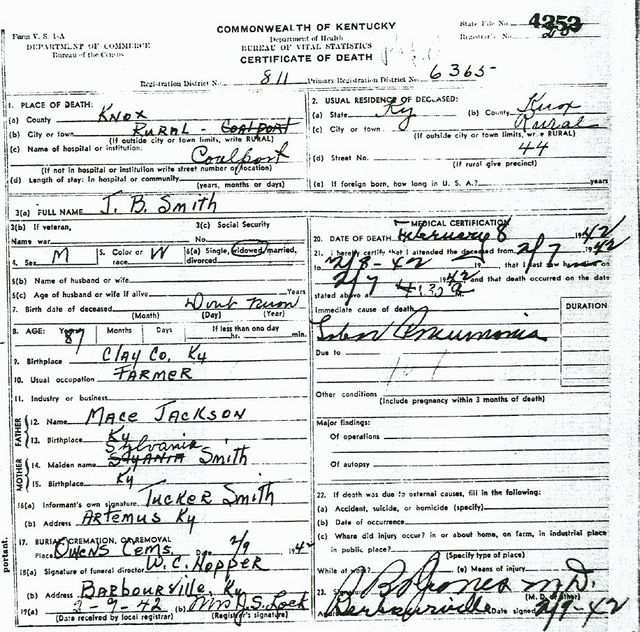 Form V. S. 1-A
DEPARTMENT OF COMMERCE
Bureau of the Census
COMMONWEALTH OF KENTUCKY
Department of Health
BUREAU OF VITAL STATISTICS
CERTIFICATE OF DEATH
State File No. 4253
Registrar's No.
Registration District No. 811 Primary Registration District No. 6365
1. PLACE OF DEATH:
(a) County Knox
(b) City or town RURAL - Coalport
(If outside city or town limits, write RURAL)
(c) Name of hospital or institution:
Coalport
(If not in hospital or institution write street number or location)
(d) Length of stay: In hospital or community
(years, months or days)
2. USUAL RESIDENCE OF DECEASED:
(a) State Ky (b) County Knox
(c) City or town Rural
(If outside city or town limits, write RURAL)
(d) Street No. 44
(If rural give precinct)
(e) If foreign born, how long in U. S. A.? years
3(a) FULL NAME J. B. Smith
3(b) If veteran, 3(c) Social Security
Name war No.
4. Sex M 5. Color or race W 6(a) Single, widowed, married, divorced
6(b) Name of husband or wife
6(c) Age of husband or wife if alive Years
7. Birth date of deceased Dont Know
(Month) (Day) (Year)
8. AGE: Years 87 Months Days If less than one day hr. min.
9. Birthplace Clay Co. Ky
10. Usual occupation FARMER
11. Industry or business
FATHER
12. Name Mace Jackson
13. Birthplace Ky
MOTHER
Sylvania
14. Maiden name Smith
15. Birthplace Ky
16(a) Informant's own signature Tucker Smith
(b) Address Artemus Ky
17. BURIAL, CREMATION, OR REMOVAL
Place Owens Cems. Date 2/9 1942
18(a) Signature of funeral director W. C. Hopper
(b) Address Barbourville, Ky
19(a) 2-9-42 (b) Mrs J. S. Lock
(Date received by local registrar) (Registrar's signature)
MEDICAL CERTIFICATION
20. DATE OF DEATH February 8 1942
21. I hereby certify that I attended the deceased from 2/7 1942
to 2/8-42 19 , that I last saw h on
2/7 1942 and that death occurred on the date
stated above at 4:30 a
Immediate cause of death
Lobar Pneumonia
DURATION
Due to
Other conditions
(Include pregnancy within 3 months of death)
Major findings:
Of operations
Of autopsy
22. If death was due to external causes, fill in the following:
(a) Accident, suicide, or homicide (specify)
(b) Date of occurrence
(c) Where did injury occur? in or about home, on farm, in industrial place
in public place?
(Specify type of place)
While at work? (e) Means of injury
23. Signature M.D.
(M. D. or other)
Address Barbourville Date signed 2/9-42
portant.